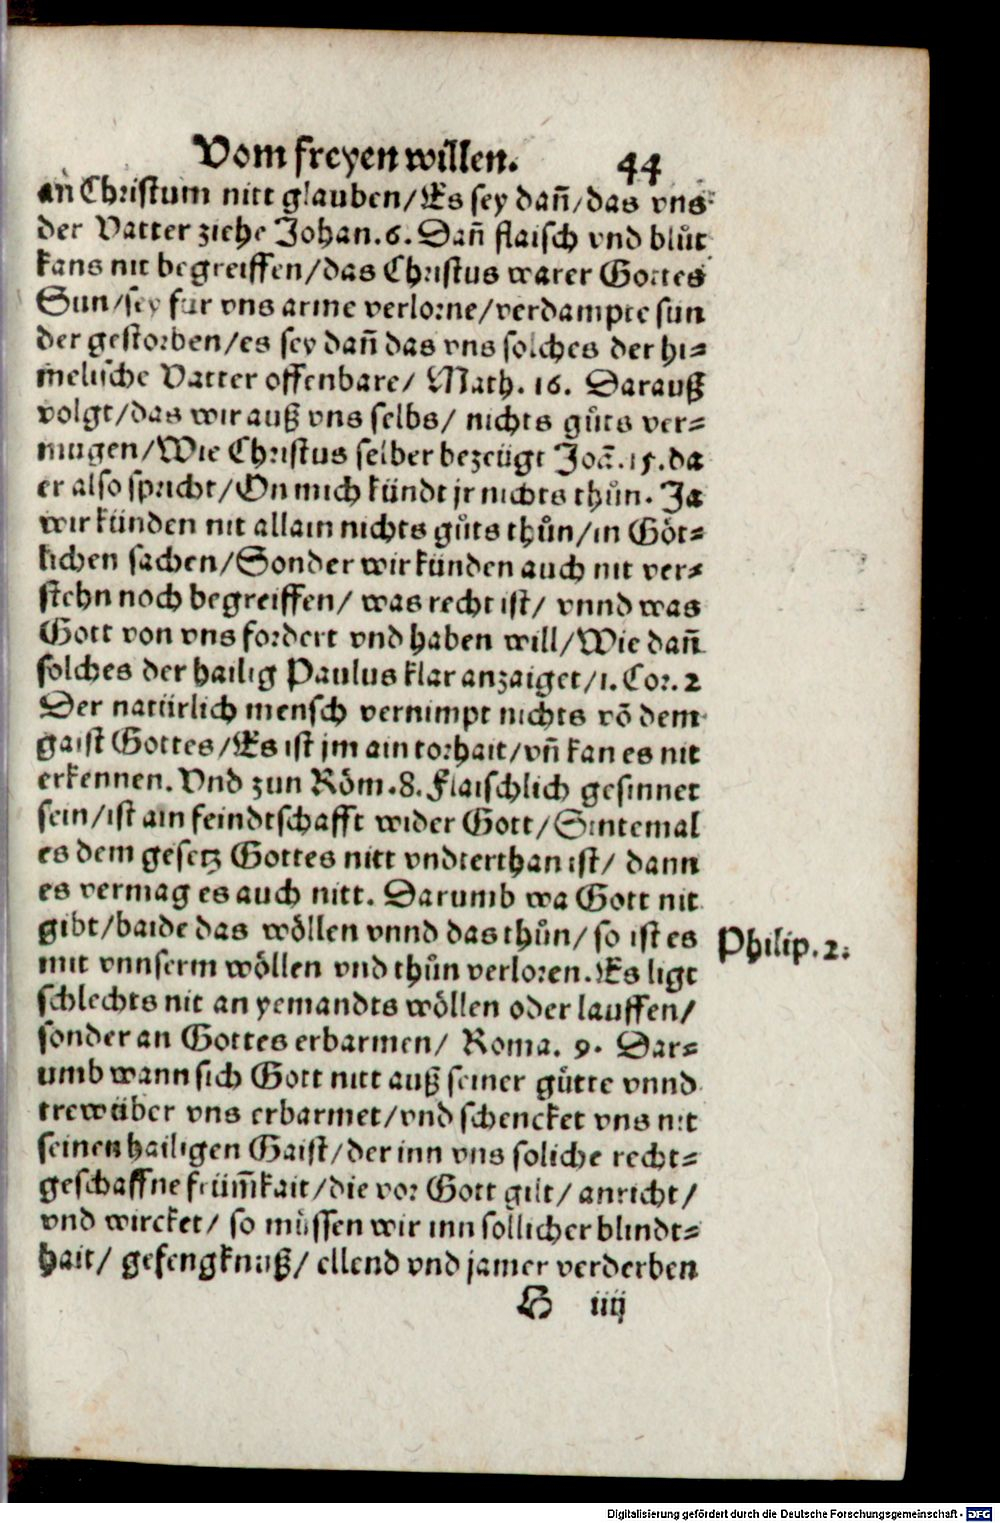 Vom freyen willen. 44
an Christum nitt glauben/Es sey dañ/das vns
der Vatter ziehe Johan.6. Dañ flaisch vnd blůt
kans nit begreiffen/das Christus warer Gottes
Sun/sey für vns arme verlorne/verdampte sün
der gestorben/es sey dañ das vns solches der hi⸗
m̃elische Vatter offenbare/ Math. 16. Darauß
volgt/das wir auß vns selbs/ nichts gůts ver⸗
mügen/Wie Christus selber bezeügt Joã.15.da
er also spricht/On mich kündt jr nichts thůn. Ja
wir künden nit allain nichts gůts thůn/in Göt⸗
lichen sachen/Sonder wir künden auch nit ver⸗
stehn noch begreiffen/ was recht ist/ vnnd was
Gott von vns fordert vnd haben will/Wie dañ
solches der hailig Paulus klar anzaiget/1. Cor. 2
Der natürlich mensch vernimpt nichts võ dem
gaist Gottes/Es ist jm ain torhait/vñ kan es nit
erkennen. Vnd zun Röm.8. Flaischlich gesinnet
sein/ist ain feindtschafft wider Gott/Sintemal
es dem gesetz Gottes nitt vndterthan ist/ dann
es vermag es auch nitt. Darumb wa Gott nit
gibt/baide das wöllen vnnd das thůn/ so ist es
mit vnnserm wöllen vnd thůn verloren. Es ligt
schlechts nit an yemandts wöllen oder lauffen/
sonder an Gottes erbarmen/ Roma. 9. Dar⸗
umb wann sich Gott nitt auß seiner gütte vnnd
trew über vns erbarmet/vnd schencket vns nit
seinen hailigen Gaist/der inn vns soliche recht⸗
geschaffne früm̃kait/die vor Gott gilt/ anricht/
vnd wircket/ so müssen wir inn sollicher blindt⸗
hait/ gefengknuß/ ellend vnd jamer verderben
H iiij
Philip. 2.
Digitalisierung gefördert durch die Deutsche Forschungsgemeinschaft - DFG